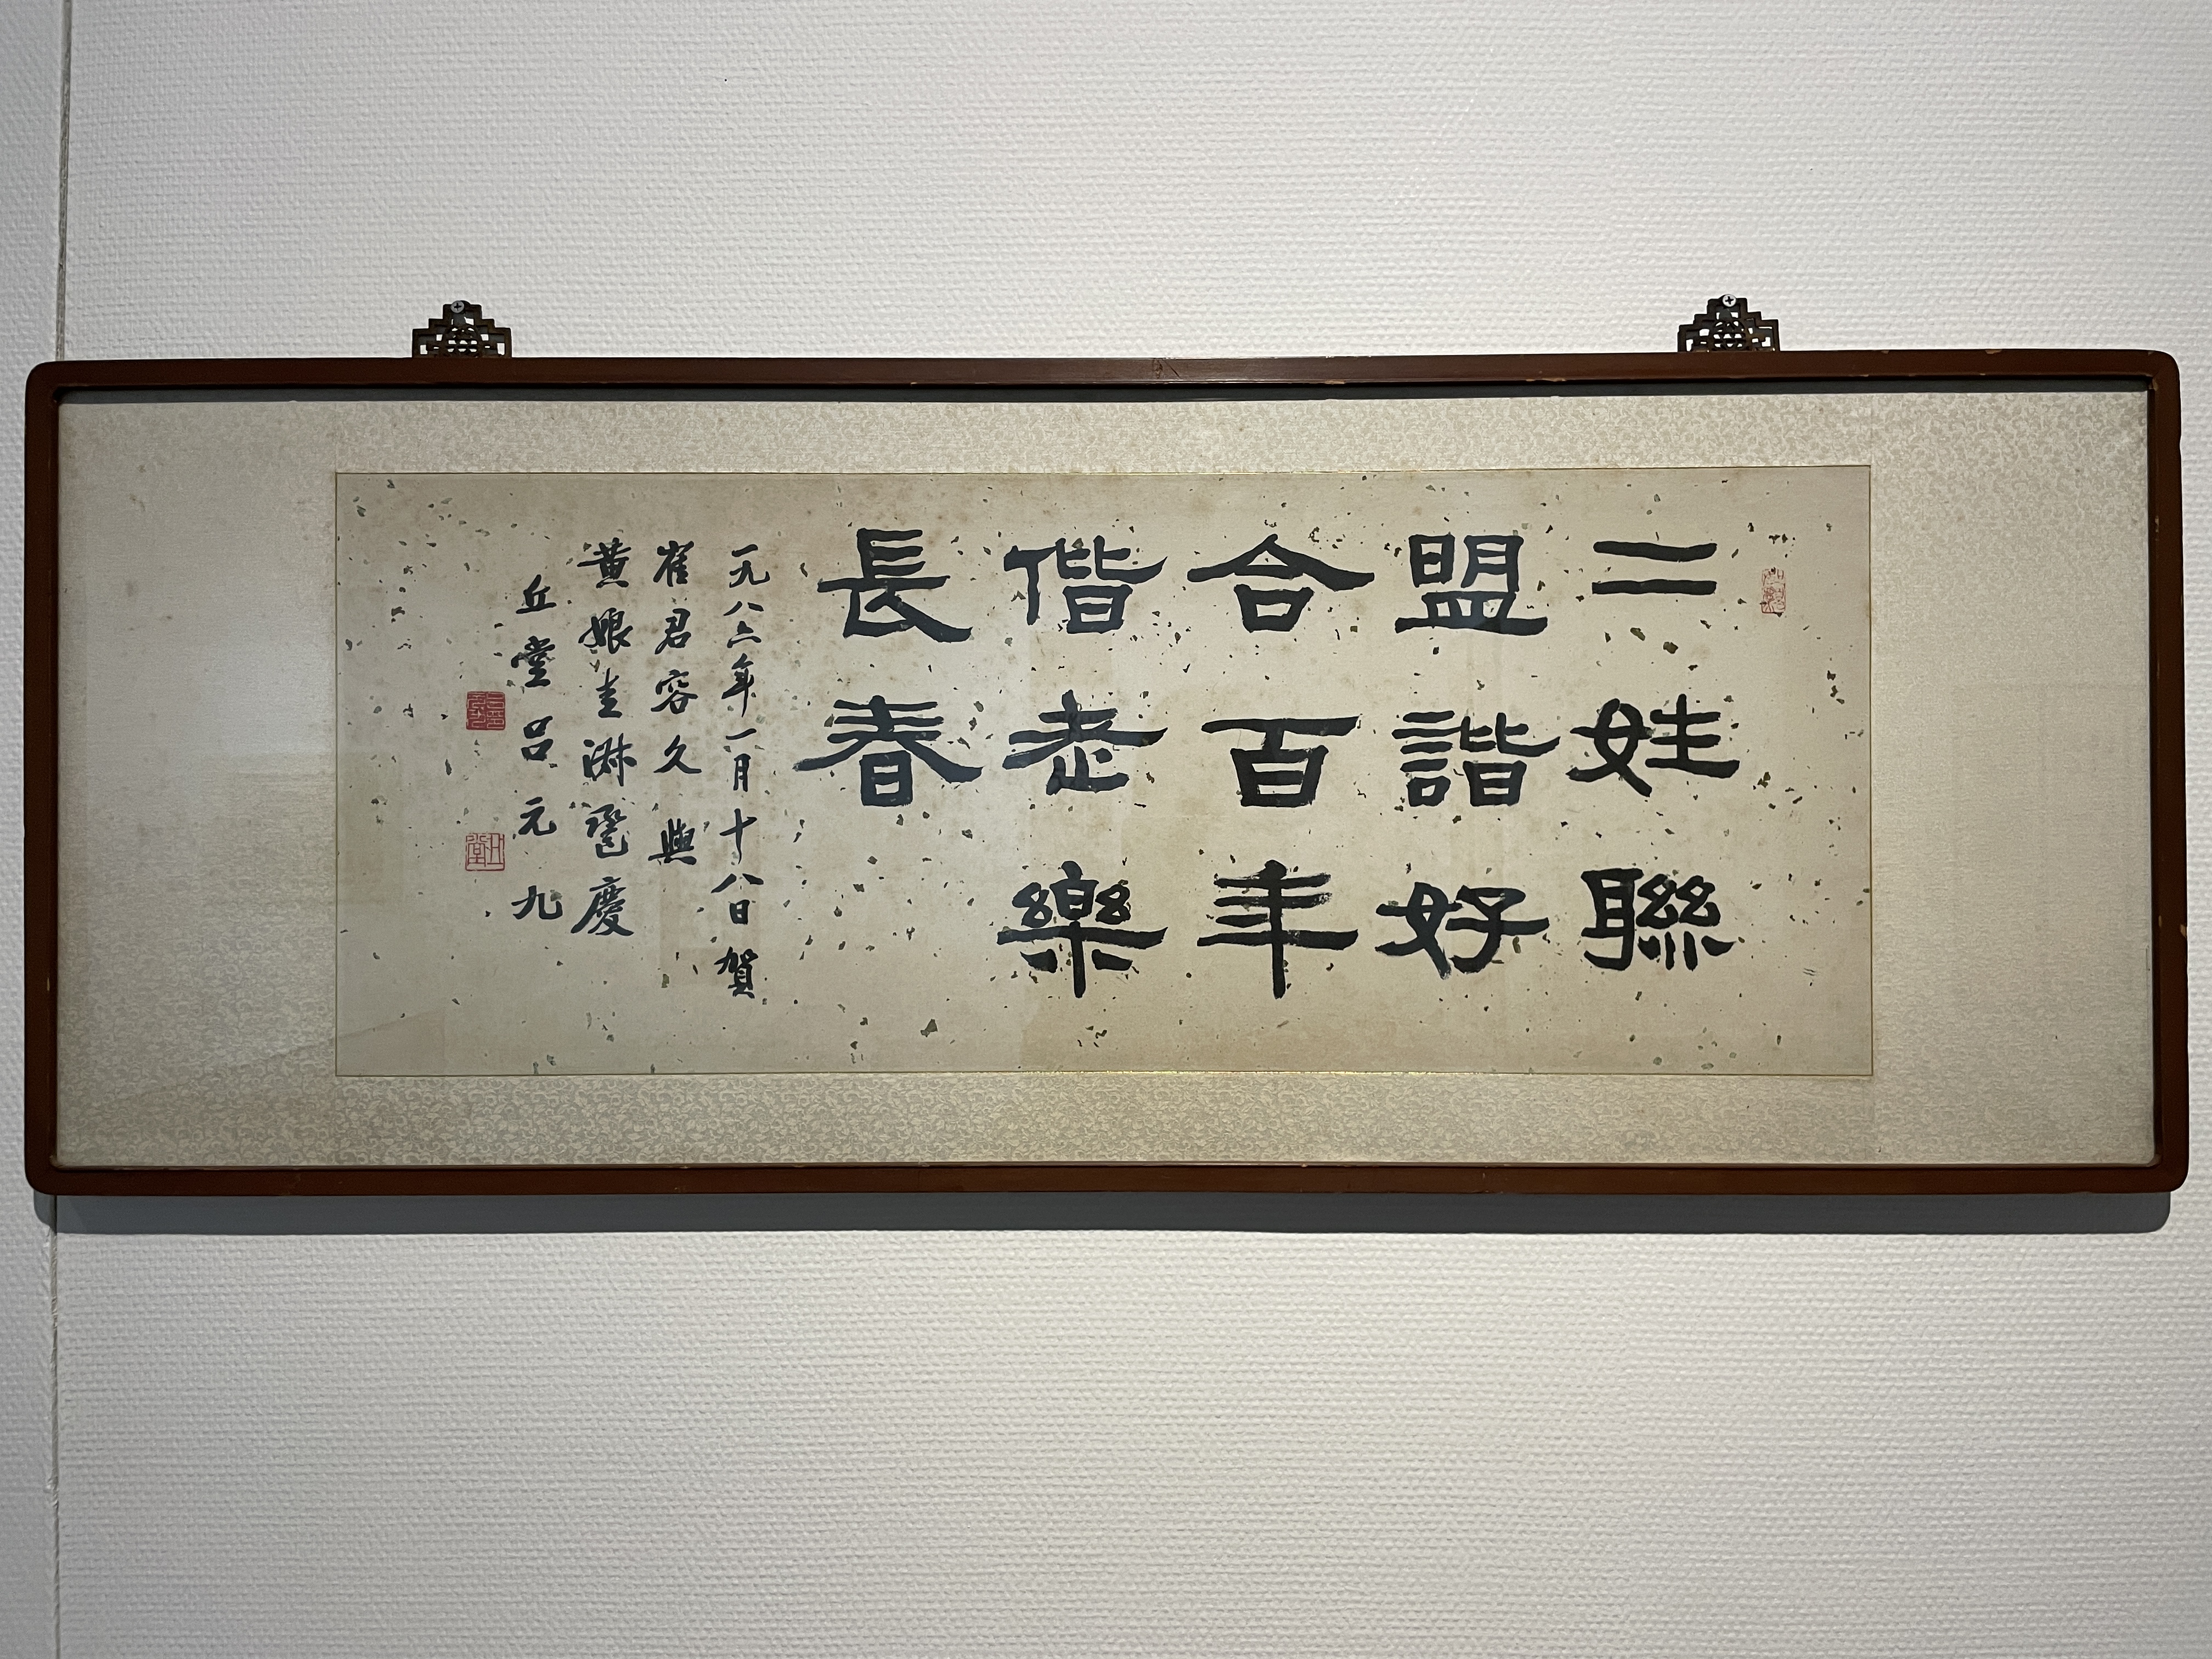 二姓聯
盟諧好
合百年
偕老樂
長春
一九八六年一月十八日賀
崔君容久與
黃娘圭淋巹慶
丘堂呂元九
丘堂